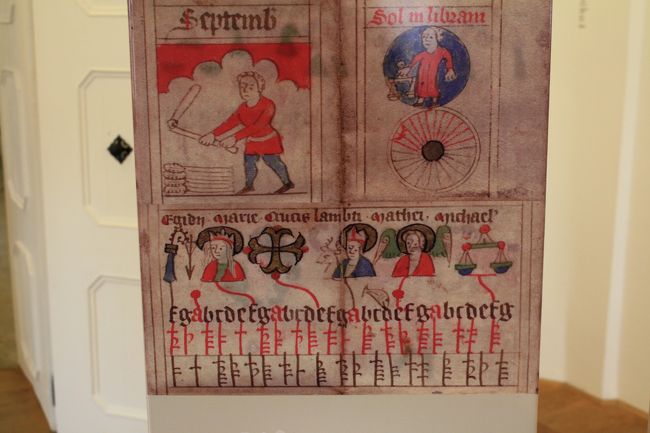 Septemb
Sol in libram
Egidii · marie · Crucis lambti · mathei · michael'
fgabcdefgabcdefgabcdefgabcdefg